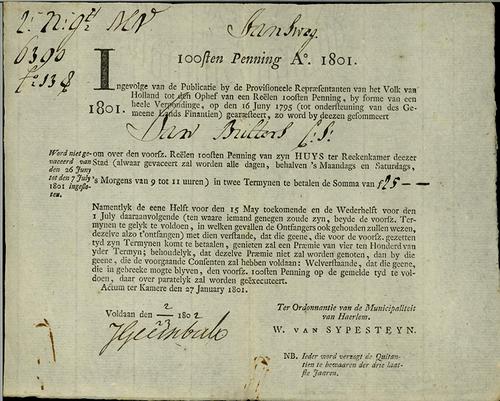 6390
100sten Penning Ao. 1801.
Ingevolge van de Publicatie by de Provisioneele Repræsentanten van het Volk van
Holland tot den Ophef van een Reëlen 100sten Penning, by forme van een
heele Verponding, op den 16 Juny 1795 (tot ondersteuning van des Ge-
meene Lands Finantien) gearresteert, zo word by deezen gesommeert
1801.
Jan
Word niet ge-
vaceerd van
den 26 Juny
tot den 7 July
1801 ingeslo-
ten.
om over den voorsz. Reëlen 100sten Penning van zyn HUYS ter Reekenkamer deezer
Stad (alwaar gevaceert zal worden alle dagen, behalven 's Maandags en Saturdags,
's Morgens van 9 tot 11 uuren) in twee Termynen te betalen de Somma van ƒ25 --
Namentlyk de eene Helft voor den 15 May toekomende en de Wederhelft voor den
1 July daaraanvolgende (ten waare iemand genegen zoude zyn, beyde de voorsz. Ter-
mynen te gelyk te voldoen, in welken gevalle de Ontfangst ook gehouden zullen wezen,
dezelve alzo t'ontfangen) met dien verstande, dat die geene, die voor de voorsz. gezetten
tyd zyn Termynen komt te betaalen, genieten zal een Præmie van vier ten Honderd van
yder Termyn; behoudelyk, dat dezelve Præmie niet zal worden genoten, dan by die
geene, die de voorgaande Consenten zal hebben voldaan: Welverstaande, dat die geene,
die in gebreke mogte blyven, den voorsz. 100sten Penning op de gemelde tyd te vol-
doen, daar over paratelyk zal worden geëxecuteert.
Actum ter Kamere den 27 January 1801.
Voldaan den 2/2 1802
Ter Ordonnantie van de Municipaliteit
van Haerlem.
W. VAN SYPESTEYN.
NB. Ieder word verzogt de Quitan-
tien te bewaaren der drie laat-
ste Jaaren.